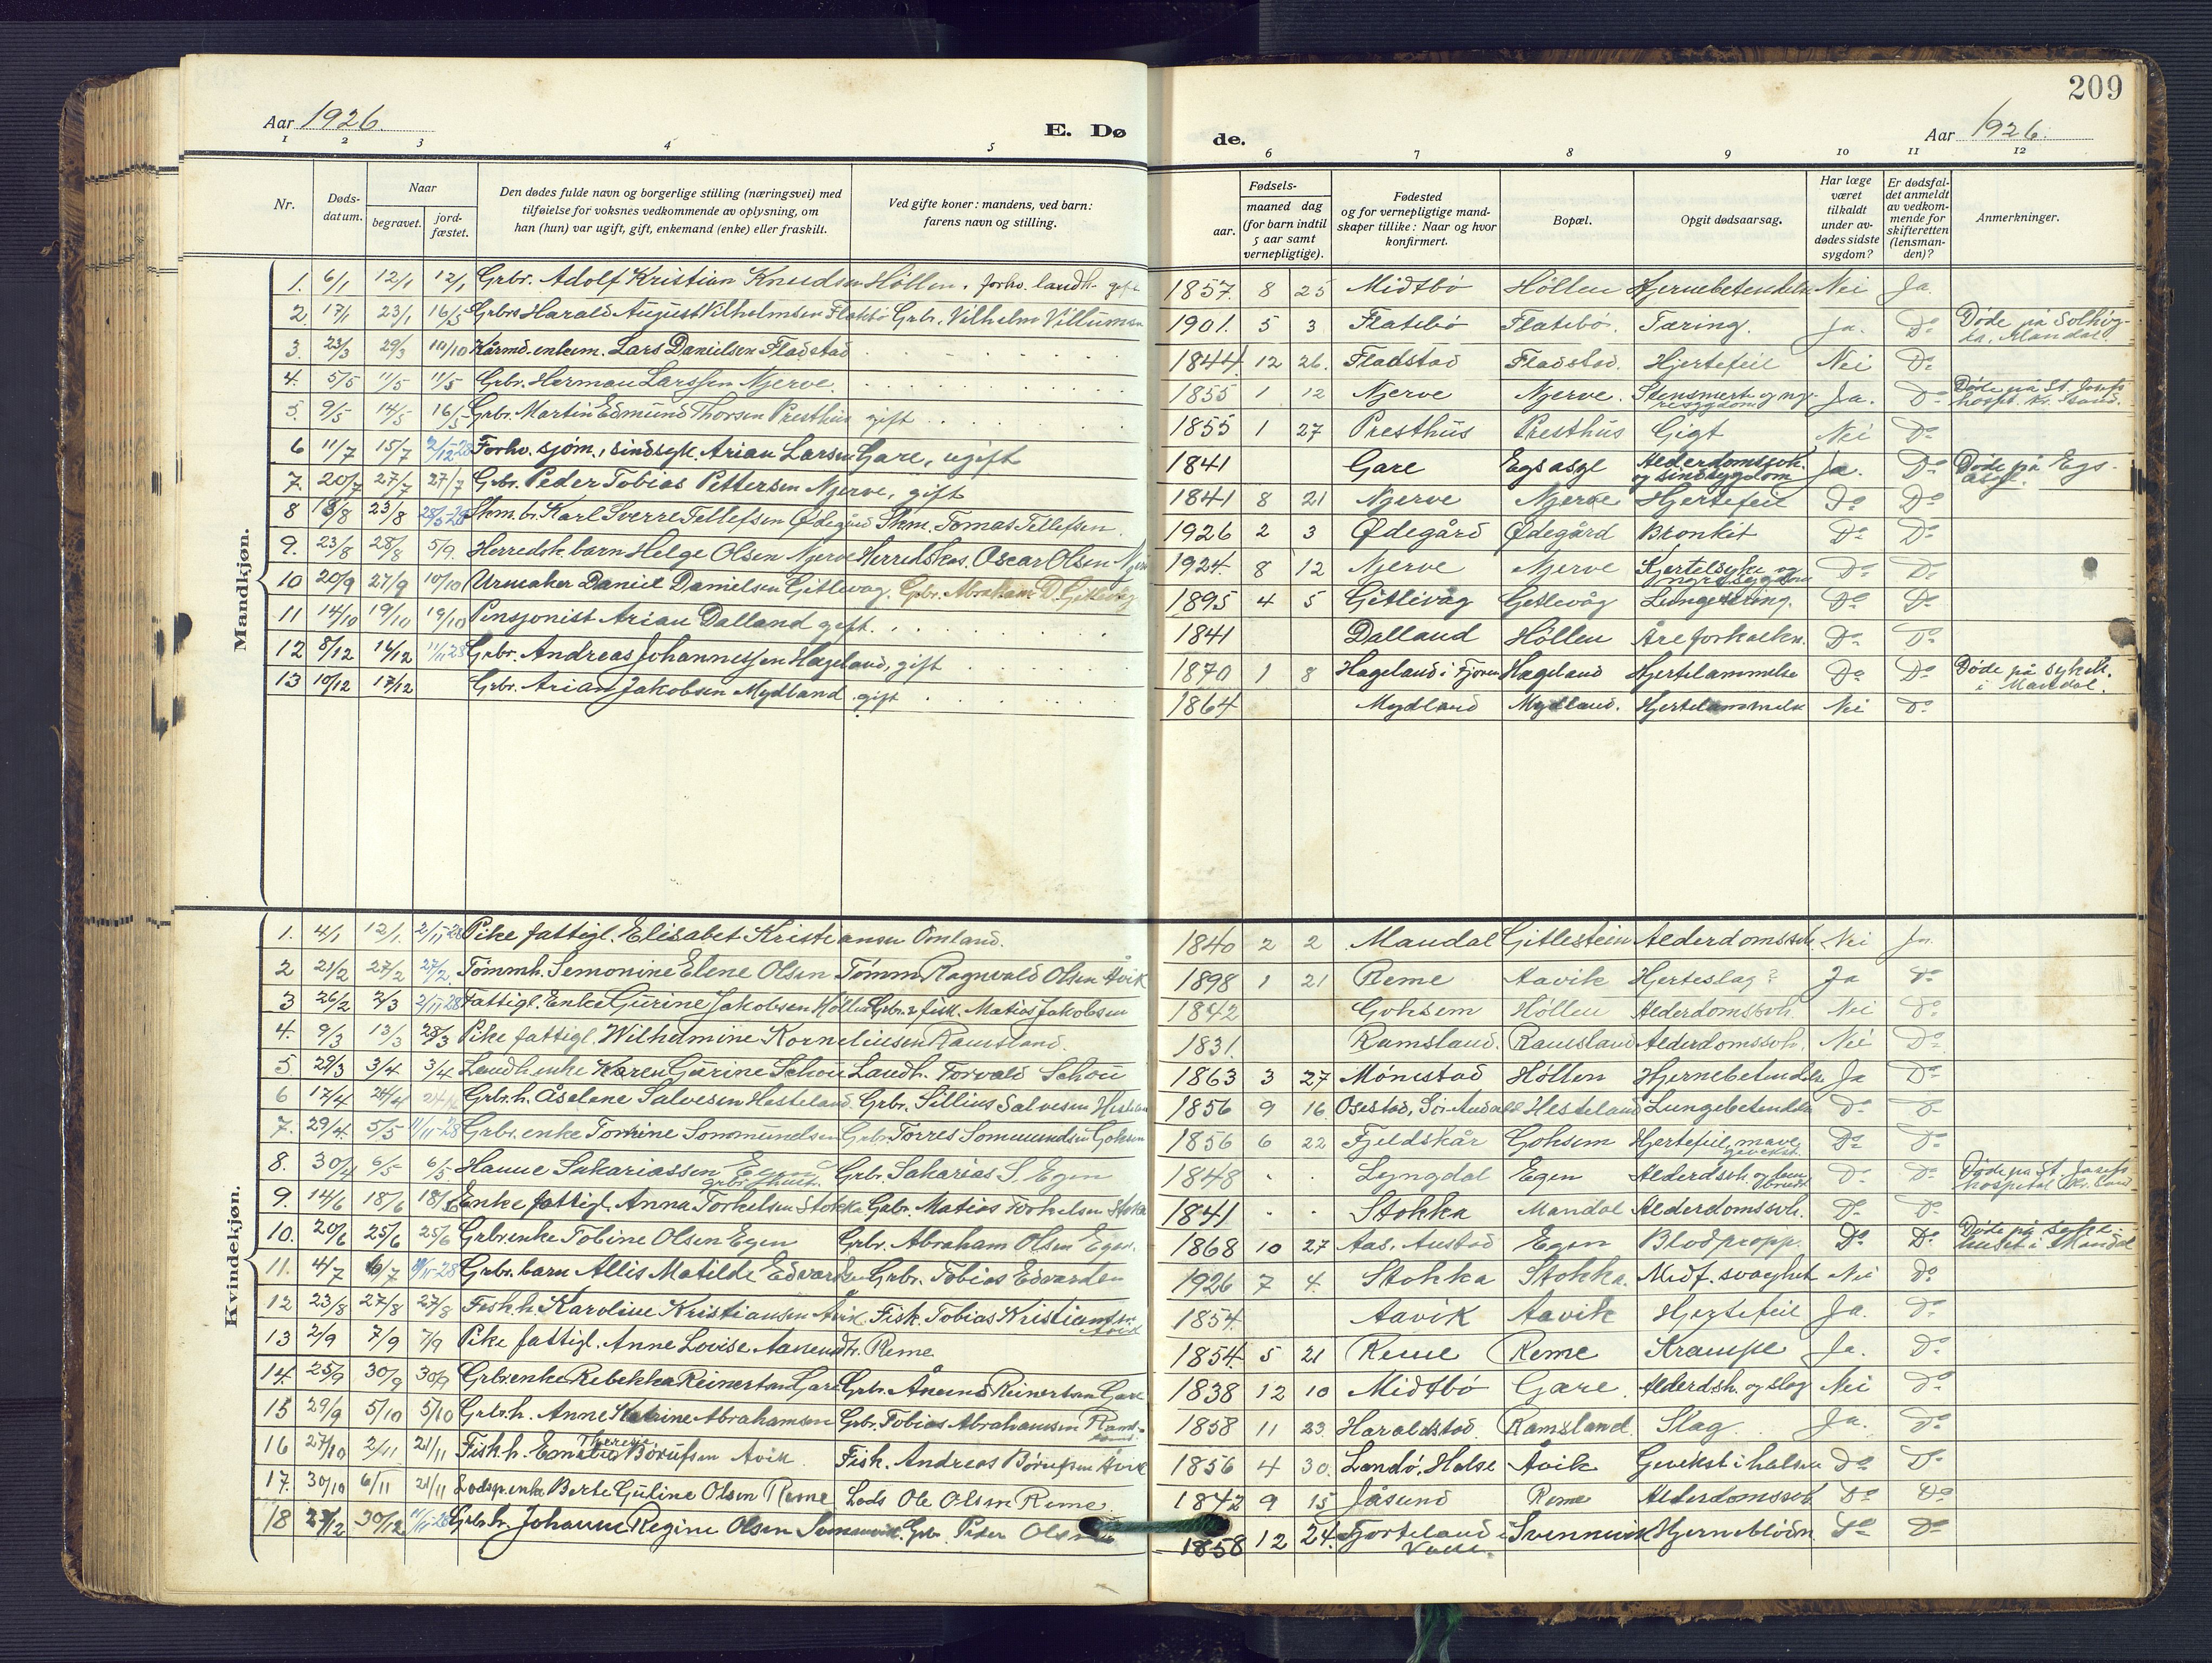 209
Aar 1926.
E. Dø
de.
Aar 1926.
1 2 3 4 5 6 7 8 9 10 11 12
Nr.
Døds-
datum.
Naar
begravet.
jord-
fæstet.
Den dødes fulde navn og borgerlige stilling (næringsvei) med
tilføielse for voksnes vedkommende av oplysning, om
han (hun) var ugift, gift, enkemand (enke) eller fraskilt.
Ved gifte koner: mandens, ved barn:
farens navn og stilling.
Fødsels-
aar.
maaned dag
(for barn indtil
5 aar samt
vernepligtige).
Fødested
og for vernepligtige mand-
skaper tillike: Naar og hvor
konfirmert.
Bopæl.
Opgit dødsaarsag.
Har læge
været
tilkaldt
under av-
dødes sidste
sygdom?
Er dødsfal-
det anmeldt
av vedkom-
mende for
skifteretten
(lensman-
den)?
Anmerkninger.
Mandkjøn.
1. 6/1 12/1 12/1 Grbr. Adolf Kristian Knudsen Höllen. forhv. landh. gift 1857 8 25 Midtbö Höllen Hjernebetendelse Nei Ja.
2. 17/1 23/1 16/5 Grbrs Harald August Vilhelmsen Flatebö Grbr. Vilhelm Villumsen 1901. 5 3 Flatebö Flatebö. Tæring. Ja. Do Döde på Solhög-
da, Mandal.
3. 23/3 29/3 10/10 Kårmd. enkem. Lars Danielsen Fladstad 1844 12 26. Fladstad Fladstad. Hjertefeil Nei Do
4. 5/5 11/5 11/5 Grbr. Herman Larssen Njerve. 1855 1 12 Njerve Njerve. Stensmert og ny-
resygdom Ja. Do Döde på St. Josefs
hospt. Kr. Sand.
5. 9/5 14/5 16/5 Grbr. Martin Edmund Thorsen Presthus gift 1855 1 27 Presthus Presthus Gigt Nei Do
6 11/7 15/7 2/12-28 Forhv. sjöm., sindsyk. Arian Larsen Gare, ugift 1841 Gare Egs asyl Alderdomssvk.
og sindsygdom Ja. Do Döde på Egs-
asyl.
7. 20/7 27/7 27/7 Grbr. Peder Tobias Pettersen Njerve, gift 1841 8 21 Njerve Njerve Hjertefeil Do Do
8 18/8 23/8 Skm. br. Karl Sverre Tellefsen Ødegård Skm. Tomas Tellefsen 1926 2 3 Ødegård Ødegård Bronkit Do Do
9. 23/8 28/8 5/9. Herredsk. barn Helge Olsen Njerve Herredskas. Oscar Olsen 1924 8 12 Njerve Njerve Kjertelsyke og
nyresygdom Do Do
10 20/9 27/9 10/10 Urmaker Daniel Danielsen Gitlevåg. Grbr. Abraham D. Gitlevåg 1895 4 5 Gitlevåg Gitlevåg Lungetæring. Do Do
11 14/10 19/10 19/10 Pensjonist Arian Dalland gift. 1841 Dalland Höllen Åreforkalkn. Do Do
12 8/12 16/12 11/11 28 Grbr. Andreas Johannessen Hageland, gift 1870 1 8 Hageland i Hageland Hjertelammelse Do Do Döde på sykeh.
i Mandal.
13 10/12 17/12 Grbr. Arian Jakobsen Mydland gift 1864 Mydland Mydland. Hjertelammelse Nei Do
Kvindekjøn.
1. 4/1 12/1. 2/11-28 Pike fattigl. Elisabet Kristiansen Omland. 1840 2 2 Mandal Gitlestein Alderdomssvk Nei Ja
2 21/2 27/2 27/2. Tömmh. Semonine Elene Olsen Tömm Ragnvald Olsen Åvik 1898 1 21 Reme Aavik Hjerteslag? Ja Do
3 26/2 2/3 2/11 28 Fattigl. Enke Gurine Jakobsen Höllen Grbr. & fisk. Matias Jakobsen 1842 Gohsem Höllen Alderdomssvk. Nei Do
4. 9/3 13/3 28/3 Pike fattigl. Wilhelmine Korneliusen Ramsland. 1831. Ramsland. Ramsland Alderdomssvk. Nei Do
5. 29/3 3/4 3/4 Landh. enke Karen Gurine Schou Landh. Torvald Schou 1863 3 27 Mönestad Höllen Hjernebetendelse Ja Do
6 17/4 24/4 Grbr.h. Åselene Salvesen Hesteland. Grbr. Sillius Salvesen 1856 9 16 Osestad, Sör-Audal Hesteland Lungebetendelse Do Do
7. 29/4. 5/5 11/11-28 Grbr. enke Torkine Sommundsen Grbr. Torres Sommundsen Gohsem 1856 6 22 Fjeldskår Gohsem Hjertefeil, mave
gevekst. Do Do
8. 30/4 6/5 6/5. Hanne Sakariassen Egen Grbr. Sakarias S. Egen 1848 Lyngdal Egen Alderdsvk. og Do Do Döde på St. Josefs
hospital Kr. Sand
9. 14/6 18/6 18/6 Enke fattigl. Anna Torkelsen Stokka Grbr. Matias Torkelsen Stokka 1841 Stokka Mandal Alderdomssvk. Do Do
10. 20/6 25/6 25/6 Grbr.enke Tobine Olsen Egen Grbr. Abraham Olsen Egen. 1868 10 27 Aas, Austad Egen Blodpropp. Do Do Döde på syke-
huset i Mandal
11. 4/7 Grbr. barn Allis Matilde Edvardsen Grbr. Tobias Edvardsen 1926 7 4. Stokka Stokka. Medf. svaghet Nei Do
12 23/8 27/8 27/8 Fisk.h. Karoline Kristiansen Åvik Fisk. Tobias Kristiansen
Åvik 1854. Aavik Aavik Hjertefeil Ja. Do
13 2/9 7/9 7/9 Pike fattigl. Anne Lovise Aanendtr. Reme 1854 5 21 Reme Reme Krampe Ja. Do
14. 25/9 30/9 30/9 Grbr.enke Rebekka Reinertsen Gare Grbr. Ånens Reinertsen Gare 1838 12 10 Midtbö Gare. Alderdsk. og slag Nei Do
15 29/9 5/10 5/10 Grbr.h. Anne Katrine Abrahamsen Grbr. Tobias Abrahamsen 1858 11 23 Haraldstad. Ramsland. Slag. Ja. Do
16 27/10 2/11 21/11 Fisk.h. Theresia Börufsen Åvik. Fisk. Andreas Börufsen Åvik 1856 4 30. Landö, Halse Åvik Gevekst i halsen Do Do
17. 30/10 6/11 21/11 Lodsp.enke Berte Guline Olsen Reme Lods Ole Olsen Reme. 1842 9 15 Jåsund Reme Alderdomssvk Do Do
18 30/12 Grbr.h. Johanne Regine Olsen Grbr. Peder Olsen 1858 12 24. Svennevik Hjerneblödn. Do Do